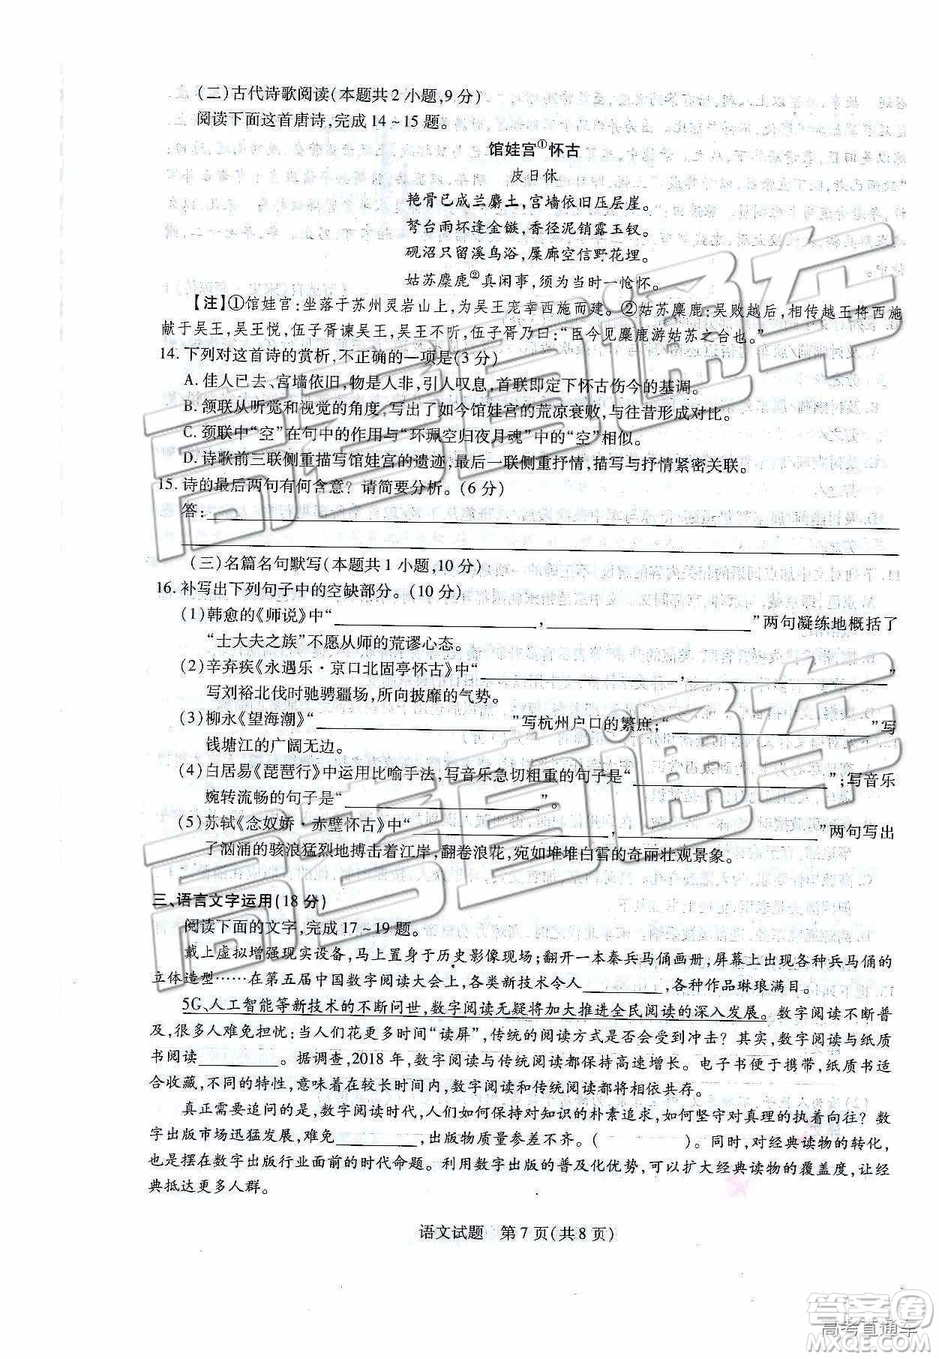 (二)古代诗歌阅读(本题共2小题,9分)
阅读下面这首唐诗,完成14~15题。
馆娃宫①怀古
皮日休
艳骨已成兰麝土,宫墙依旧压层崖。
弩台雨坏逢金镞,香径泥销露玉钗。
砚沼只留溪鸟浴,屟廊空信野花埋。
姑苏麋鹿②真闲事,须为当时一怆怀。
【注】①馆娃宫:坐落于苏州灵岩山上,为吴王宠幸西施而建。②姑苏麋鹿:吴败越后,相传越王将西施
献于吴王,吴王悦,伍子胥谏吴王,吴王不听,伍子胥乃曰:“臣今见麋鹿游姑苏之台也。”
14.下列对这首诗的赏析,不正确的一项是(3分)
A.佳人已去、宫墙依旧,物是人非,引人叹息,首联即定下怀古伤今的基调。
B.颔联从听觉和视觉的角度,写出了如今馆娃宫的荒凉衰败,与往昔形成对比。
C.颈联中“空”在句中的作用与“环珮空归夜月魂”中的“空”相似。
D.诗歌前三联侧重描写馆娃宫的遗迹,最后一联侧重抒情,描写与抒情紧密关联。
15.诗的最后两句有何含意?请简要分析。(6分)
答:
(三)名篇名句默写(本题共1小题,10分)
16.补写出下列句子中的空缺部分。(10分)
(1)韩愈的《师说》中“ , ”两句凝练地概括了
“士大夫之族”不愿从师的荒谬心态。
(2)辛弃疾《永遇乐·京口北固亭怀古》中“ , ”
写刘裕北伐时驰骋疆场,所向披靡的气势。
(3)柳永《望海潮》“ ”写杭州户口的繁庶;“ ”写
钱塘江的广阔无边。
(4)白居易《琵琶行》中运用比喻手法,写音乐急切粗重的句子是“ ”;写音乐
婉转流畅的句子是“ ”。
(5)苏轼《念奴娇·赤壁怀古》中“ , ”两句写出
了汹涌的骇浪猛烈地搏击着江岸,翻卷浪花,宛如堆堆白雪的奇丽壮观景象。
三、语言文字运用(18分)
阅读下面的文字,完成17~19题。
戴上虚拟增强现实设备,马上置身于历史影像现场;翻开一本秦兵马俑画册,屏幕上出现各种兵马俑的
立体造型……在第五届中国数字阅读大会上,各类新技术令人 ,各种作品琳琅满目。
5G、人工智能等新技术的不断问世,数字阅读无疑将加大推进全民阅读的深入发展。数字阅读不断普
及,很多人难免担忧:当人们花更多时间“读屏”,传统的阅读方式是否会受到冲击?其实,数字阅读与纸质
书阅读 。据调查,2018年,数字阅读与传统阅读都保持高速增长。电子书便于携带,纸质书适
合收藏,不同的特性,意味着在较长时期内,数字阅读和传统阅读都将相依共存。
真正需要追问的是,数字阅读时代,人们如何保持对知识的朴素追求,如何坚守对真理的执着向往?数
字出版市场迅猛发展,难免 ,出版物质量参差不齐。( )。同时,对经典读物的转化,
也摆在数字出版行业面前的时代命题。利用数字出版的普及化优势,可以扩大经典读物的覆盖度,让经
典抵达更多人群。
语文试题 第7页(共8页)
高考直通车
答案圈
高考直通车